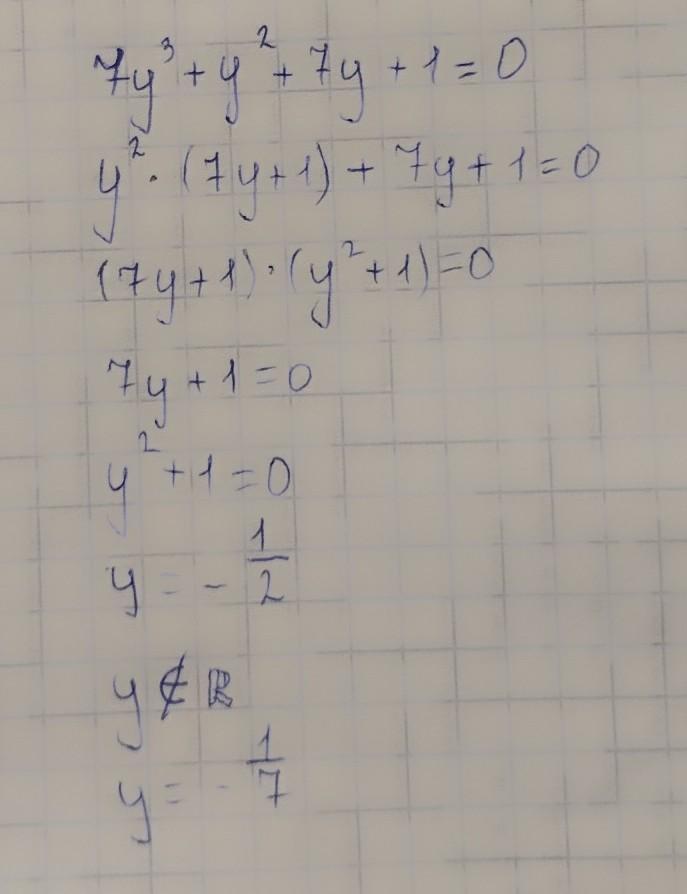 7y³ + y² + 7y + 1 = 0
y² · (7y + 1) + 7y + 1 = 0
(7y + 1) · (y² + 1) = 0
7y + 1 = 0
y² + 1 = 0
y = - 1/2
y ∉ ℝ
y = - 1/7